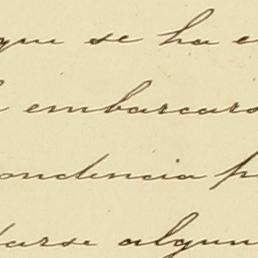 que se ha e
embarcars
ondencia p
tarse algun